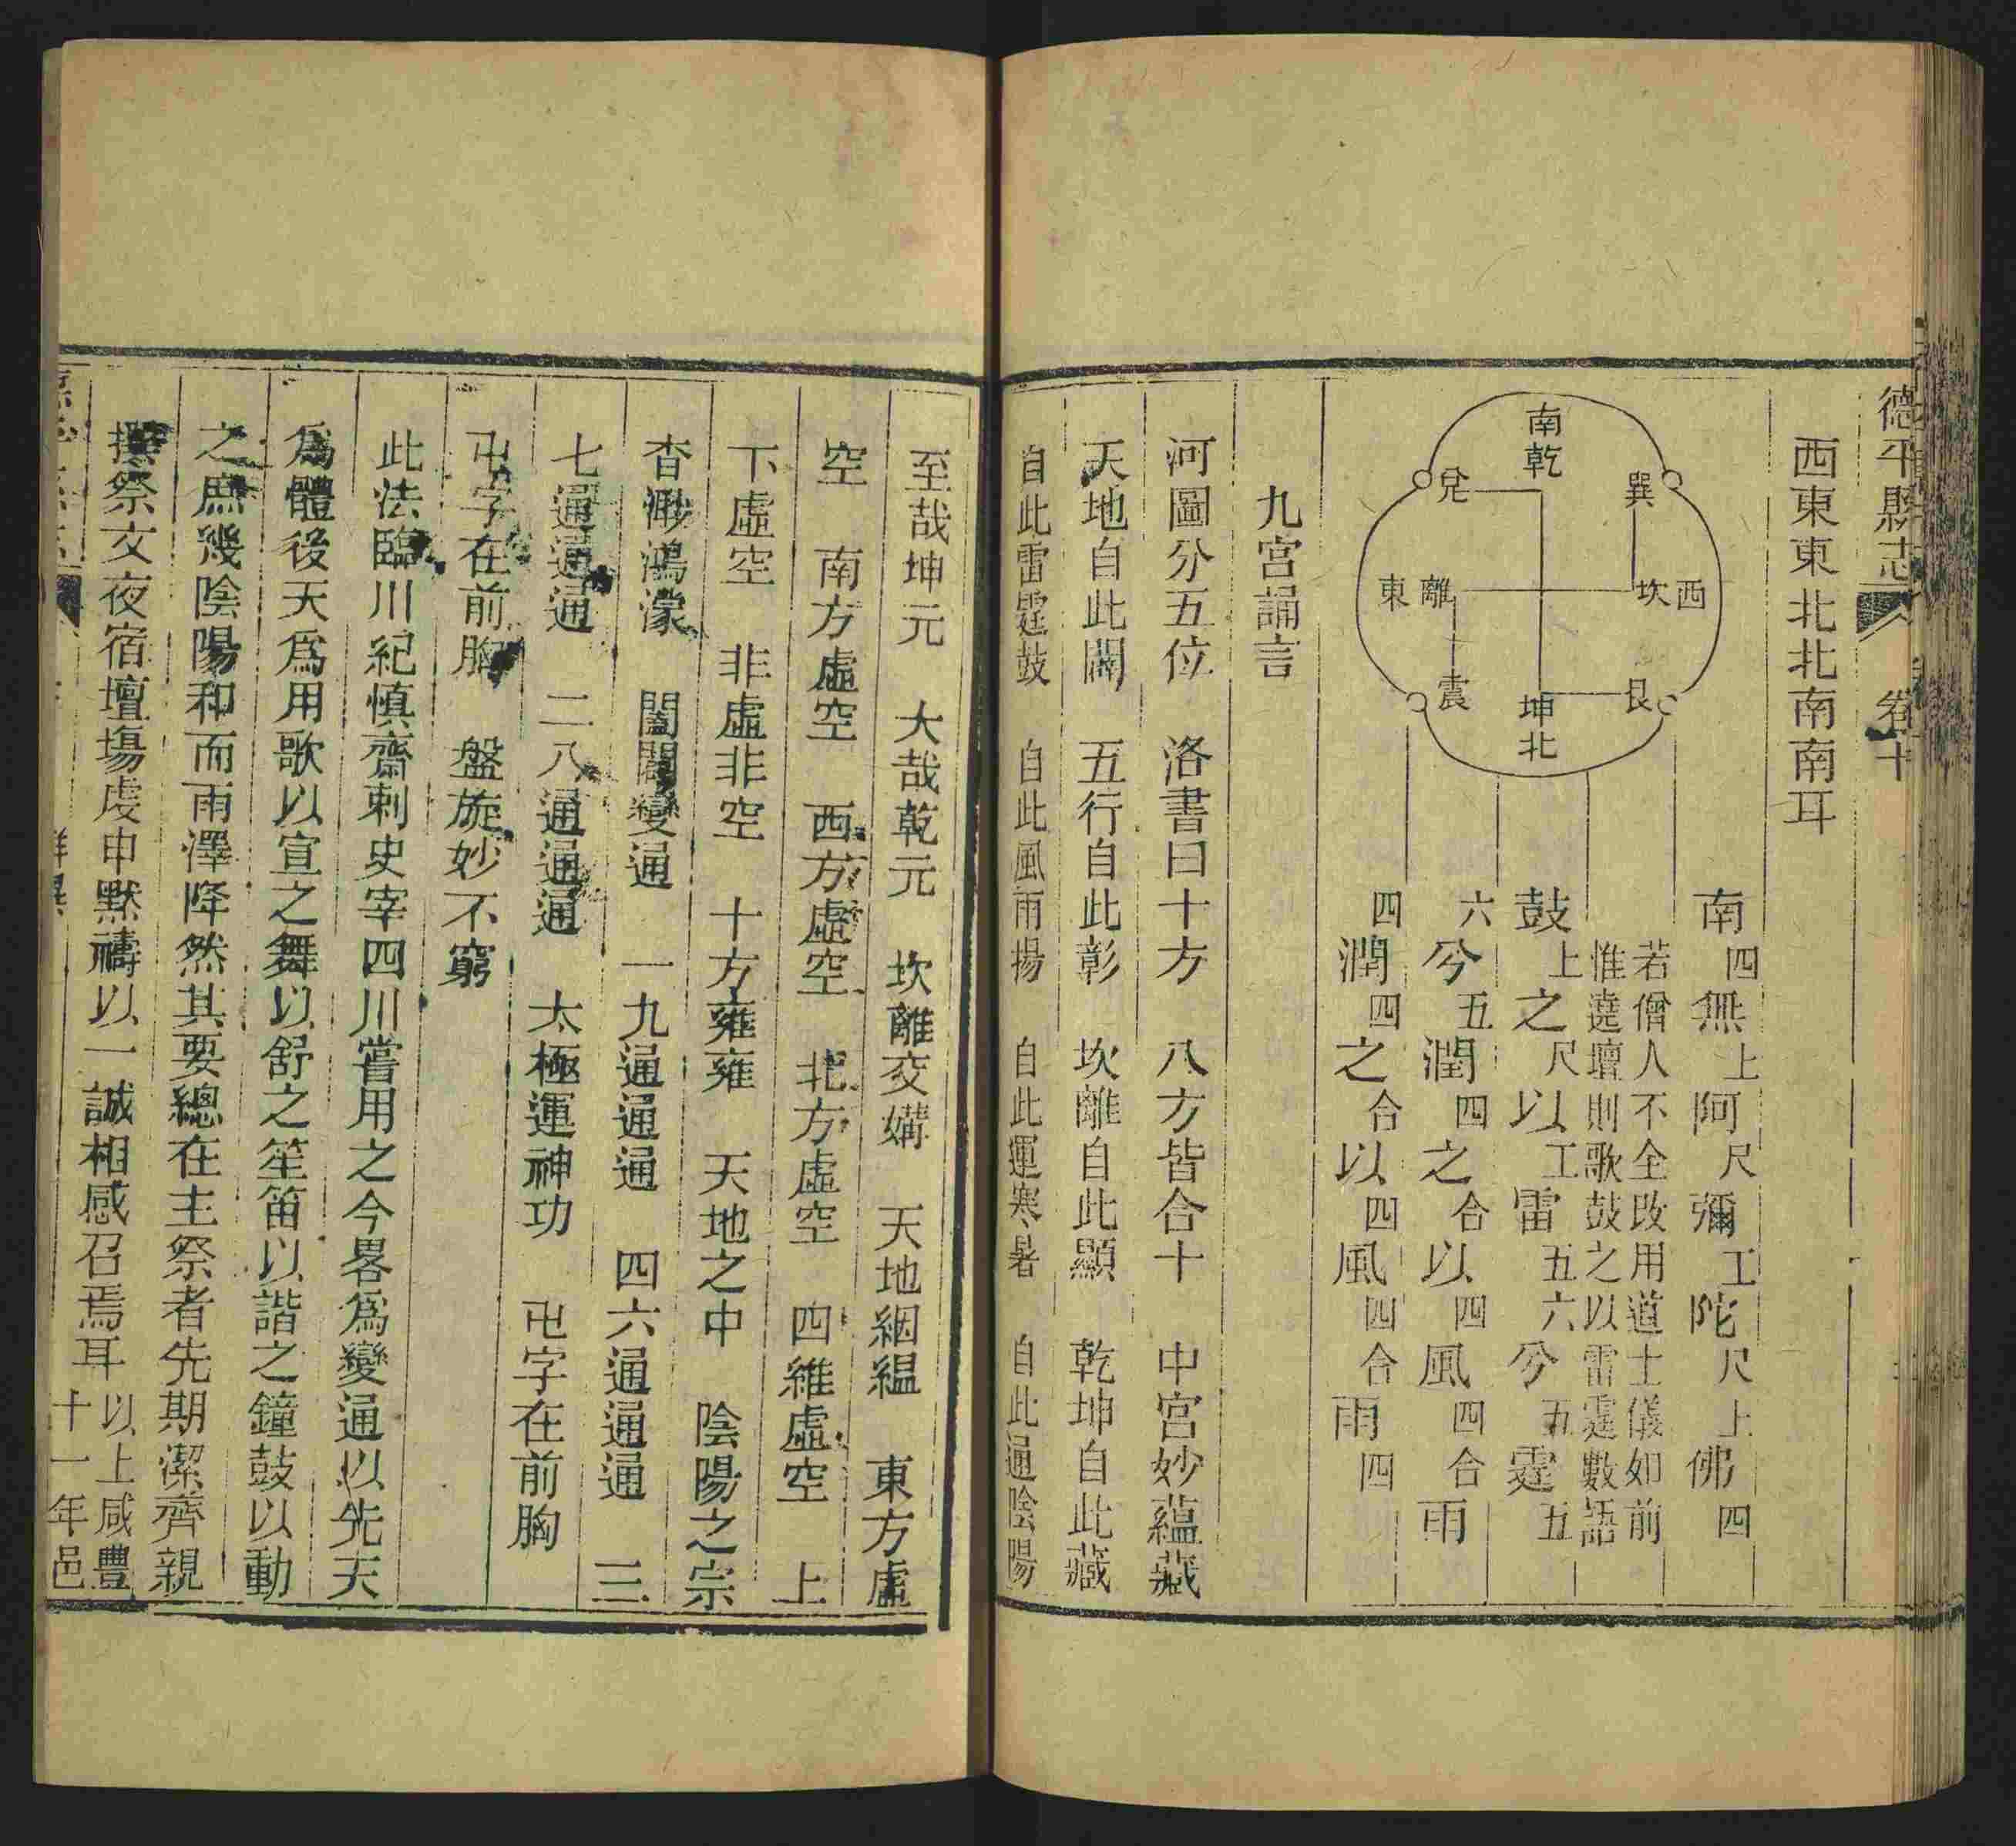 德平縣志
卷十
西東東北北南南耳
南乾
巽
兌
西坎
東離
艮
震
坤北
南四無上阿尺彌工陀尺上佛四
若僧人不全改用道士儀如前
惟遶壇則歌鼓之以雷霆數語
鼓上之尺以工雷五六兮五霆五
六兮五潤四之合以四風四合雨
四潤四之合以四風四合雨四
九宮誦言
河圖分五位　洛書曰十方　八方皆合十　中宮妙蘊藏
天地自此闢　五行自此彰　坎離自此顯　乾坤自此藏
自此雷霆鼓　自此風雨揚　自此運寒暑　自此通陰陽
至哉坤元　大哉乾元　坎離交媾　天地絪縕　東方虛
空　南方虛空　西方虛空　北方虛空　四維虛空　上
下虛空　非虛非空　十方雍雍　天地之中　陰陽之宗
杳渺鴻濛　闔闢變通　一九通通通　四六通通通　三
七通通通　二八通通通　太極運神功　卍字在前胸
卍字在前胸　盤旋妙不窮
此法臨川紀慎齋刺史宰四川嘗用之今畧為變通以先天
為體後天為用歌以宣之舞以舒之笙笛以諧之鐘鼓以動
之庶幾陰陽和而雨澤降然其要總在主祭者先期潔齊親
撰祭文夜宿壇塲虔申默禱以一誠相感召焉耳以上咸豐
十一年邑
祥異